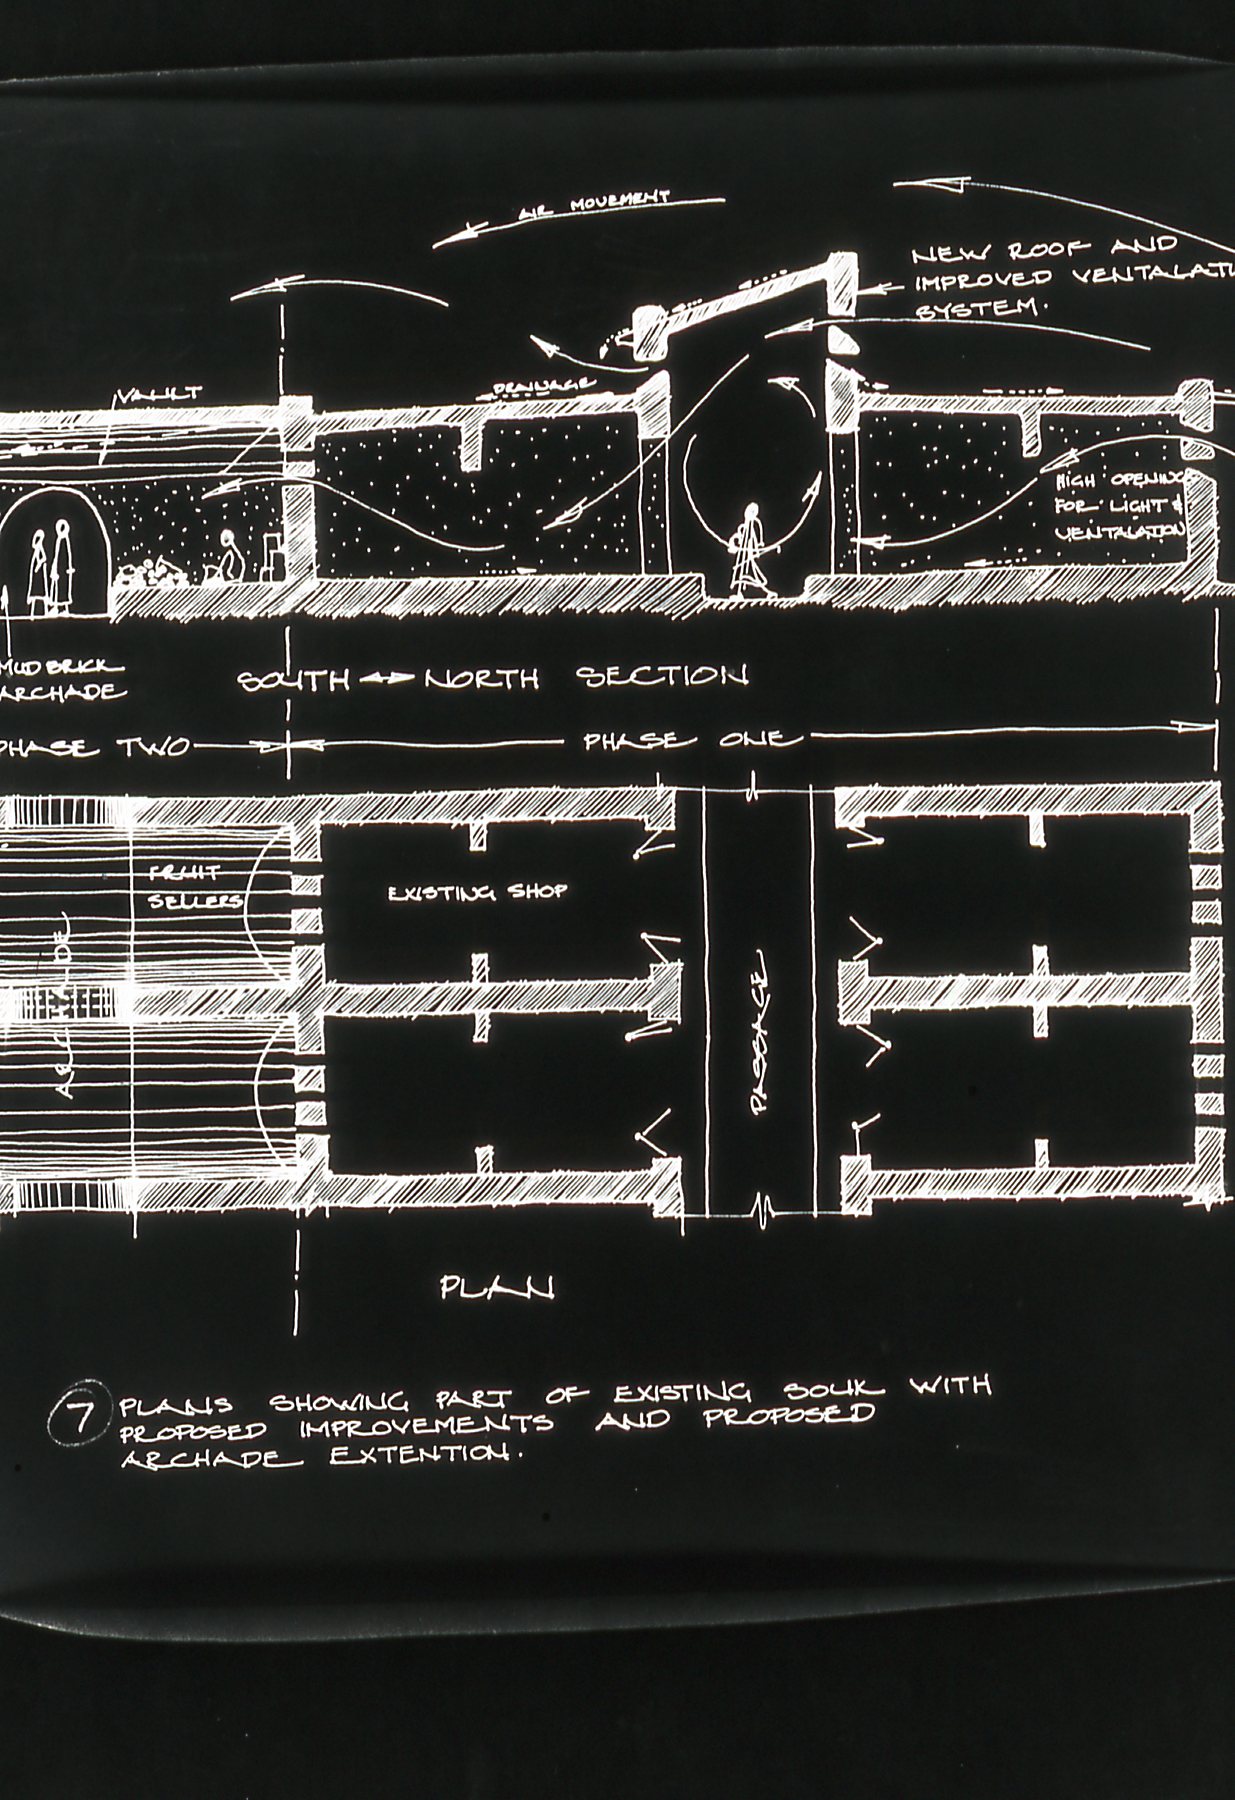 AIR MOVEMENT
NEW ROOF AND
IMPROVED VENTALATI
SYSTEM.
VAULT
DRAINAGE
HIGH OPENING
FOR LIGHT &
VENTALATION
MUDBRICK
ARCHADE
SOUTH ↔ NORTH SECTION
PHASE TWO
PHASE ONE
FRUIT
SELLERS
EXISTING SHOP
ARCHADE
PASSAGE
PLAN
7 PLANS SHOWING PART OF EXISTING SOUK WITH
PROPOSED IMPROVEMENTS AND PROPOSED
ARCHADE EXTENTION.